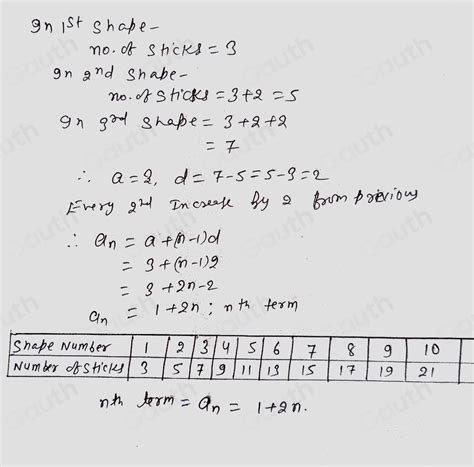 In 1st Shape-
no. of sticks = 3
In 2nd Shape-
no. of sticks = 3+2 = 5
In 3rd Shape = 3+2+2
= 7
∴ a = 3, d = 7-5 = 5-3 = 2
Every 2nd Increase by 2 from previous
∴ an = a+(n-1)d
= 3+(n-1)2
= 3+2n-2
an = 1+2n; nth term
Shape Number 1 2 3 4 5 6 7 8 9 10
Number of Sticks 3 5 7 9 11 13 15 17 19 21
nth term = an = 1+2n.